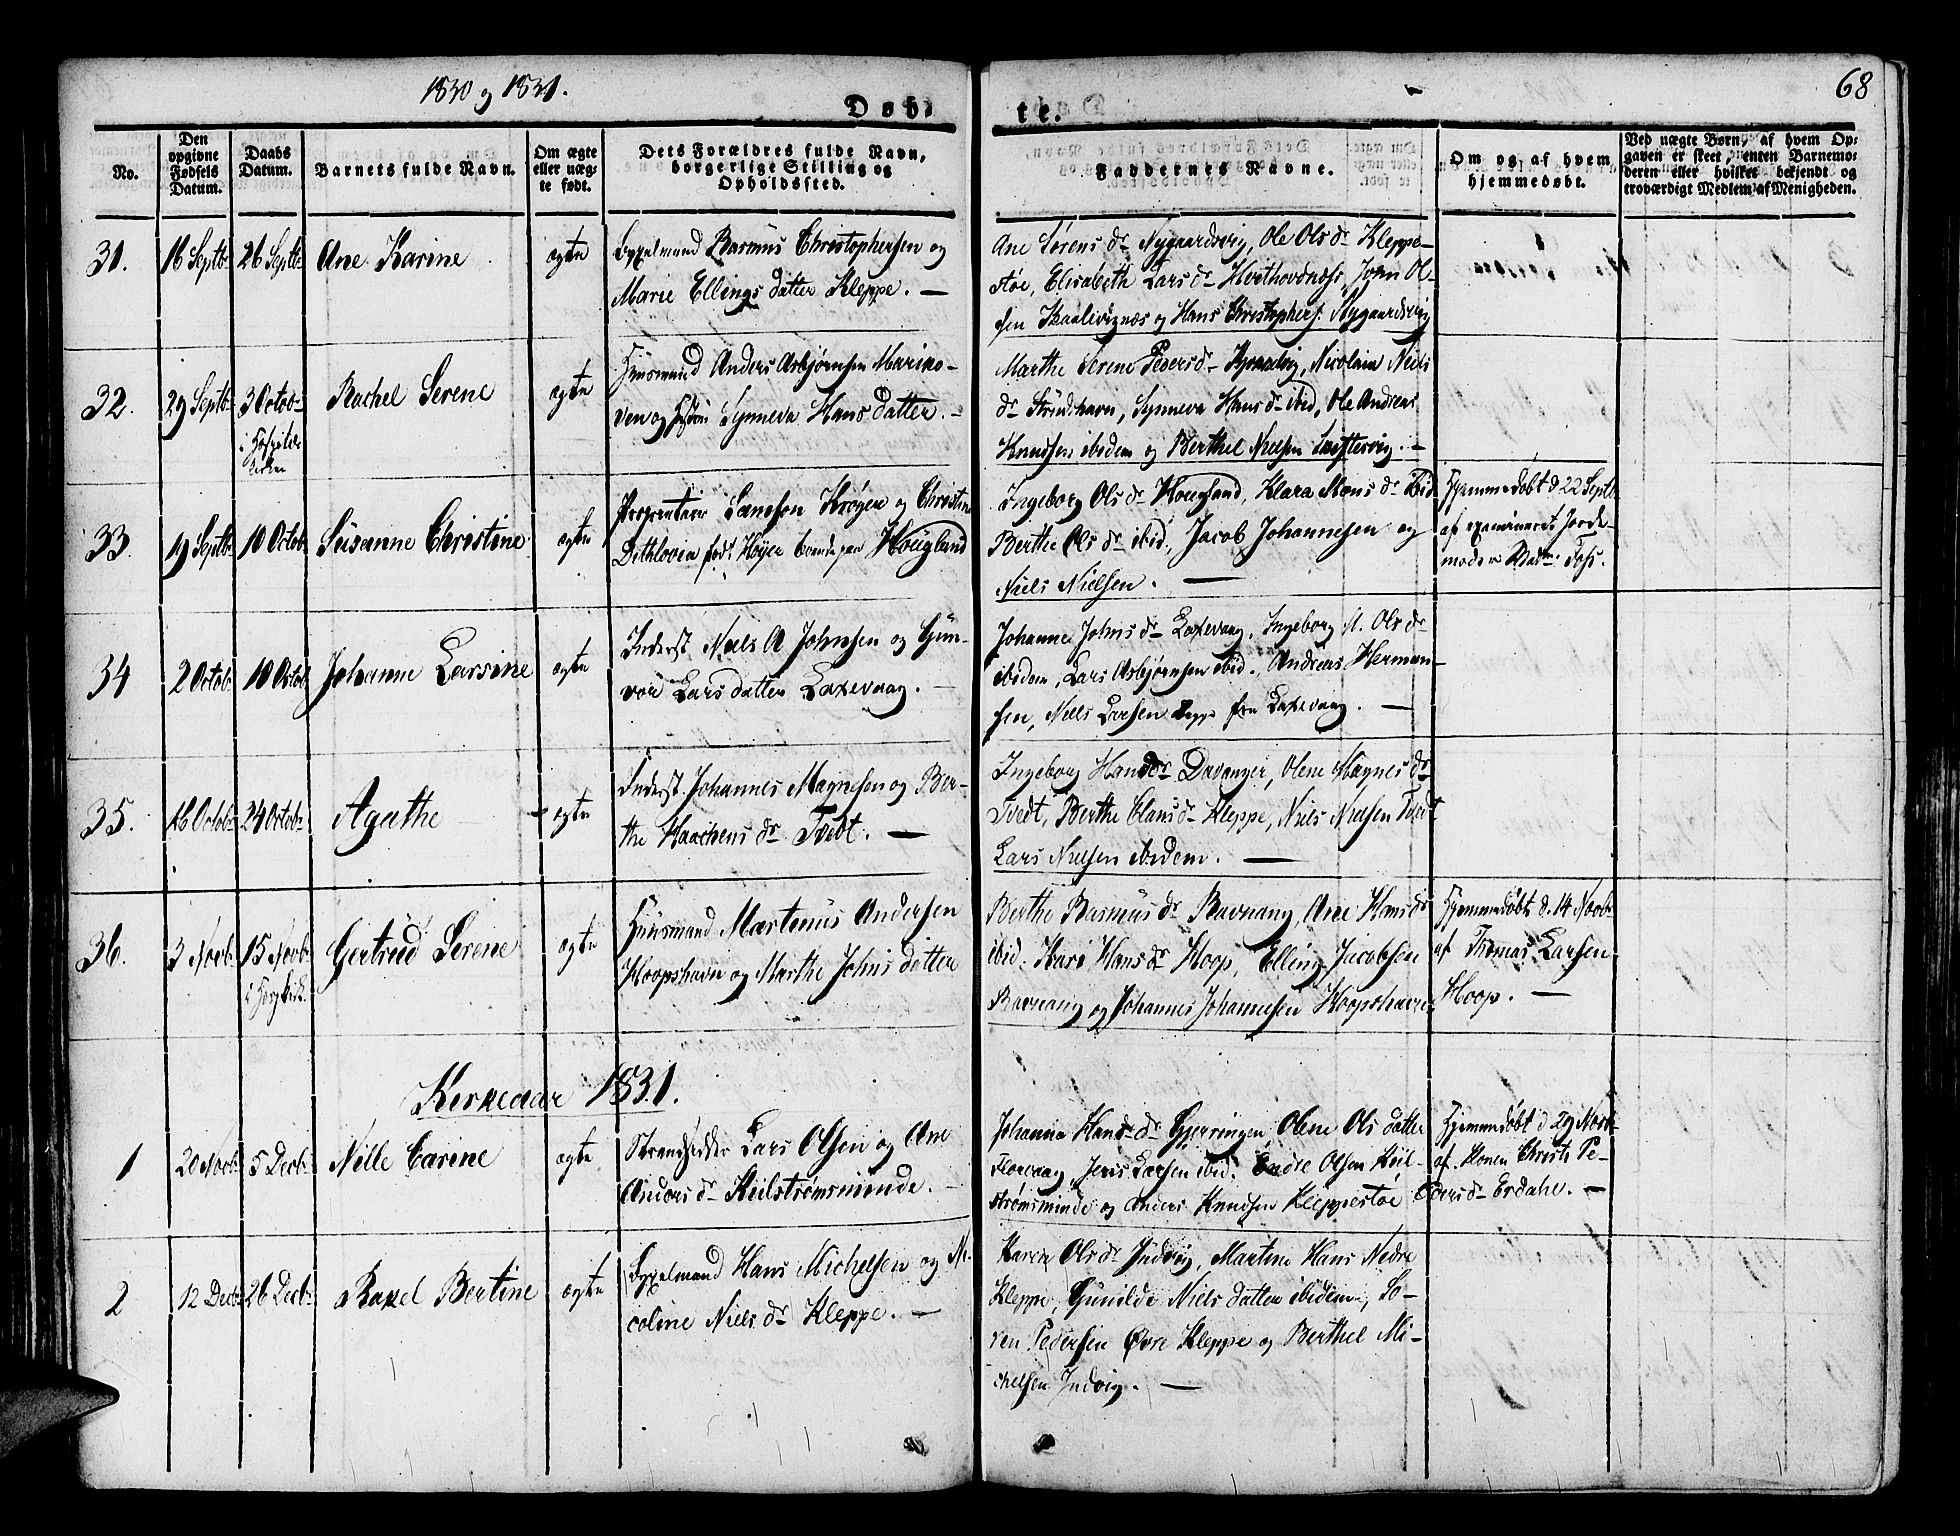 1830 og 1831.
68
Døbte.
No.
Den opgivne Fødsels Datum.
Daabs Datum.
Barnets fulde Navn.
Om ægte eller uægte født.
Dets Forældres fulde Navn, borgerlige Stilling og Opholdssted.
Faddernes Navne.
Om og af hvem hjemmedøbt.
Ved uægte Børn, af hvem Opgaven er skeet, enten Barnemoderen eller hvilket bekjendt og troværdigt Medlem af Menigheden.
31. 16 Septb: 26 Septb: Ane Karine ægte
Rasmus Christophersen og
Marie Ellings datter Kleppe. —
Ane Sørens dr Nygaardsvig, Ole Ols dr Kleppe-
støe, Elisabeth Lars dr John Ol-
sen og Hans Christophers: Nygaardsvig
32. 29 Septb: 3 Octob: Rachel Serene ægte
i Hospitals
kirken
Huusmand Anders Asbjørnsen Mariko-
ven og Synneva Hans datter. -
Marthe Serene Peders dr Nicolaia Niels
dr Strudshavn, Synneva Hans dr ibid, Ole Andreas
Knudsen ibidem og Berthel Nielsen —
33. 19 Septb: 10 Octob: Susanne Christine ægte
Proprietair Samson Krøyer og Christine
Dethlovia født Høyer boende paa Hougland
Ingeborg Ols dr Hougland, Klara Mons dr ibid
Berthe Ols dr ibid, Jacob Johannesen og
Niels Nielsen. —
Hjemmedøbt d 22 Septb:
af examineret Jorde-
moder Mad: Foss.
34 2 Octob: 10 Octob: Johanne Larsine ægte
Inderst Niels A Johnsen og Gun-
vor Lars datter Laxevaag. -
Johanne Johns dr Laxevaag, Ingeborg M. Ols dr
ibidem, Lars Asbjørnsen ibid. Andreas Herman-
sen, Niels Larsen fra Laxevaag. —
35. 16 Octob: 24 Octob: Agathe - ægte
Inderst Johannes Magnesen og Ber-
the Haachens dr Tvedt. —
Ingeborg Hans dr Davanger, Olene Magnes dr
Tvedt, Berthe Clans dr Kleppe, Niels Nielsen Tvedt
Lars Nielsen ibidem. —
36. 3 Novb: 15 Novb: Gertrud Serene ægte
Huusmand Martenus Andersen
Hoopshavn og Marthe Johns datter
Berthe Rasmus dr Ravnang, Ane Hans dr
ibid. Kari Hans dr Hoop, Elling Jacobsen
Ravnang og Johannes Johannesen Hoopshavn
Hjemmedøbt d. 14 Novb:
af Thomas Larsen
Hoop. —
Kirkeaar 1831.
1 20 Novb: 5 Decb: Nille Carine ægte
Strandsidder Lars Olsen og Ane
Anders dr Keilstrømsminde. -
Johanna Hans dr Gjerringen, Olene Ols datter
Florvaag, Jens Larsen ibid. Endre Olsen Keil-
strømsminde og Anders Knudsen Kleppestøe
Hjemmedøbt d 29 Novb:
af Konen Christi Pe-
ders dr Erdahl. —
2 12 Decb: 26 Decb: Raxel Bertine ægte
Hans Michelsen og Ni-
coline Niels dr Kleppe. —
Karen Ols dr Indvig, Martine Hans Nedre
Kleppe, Gunilde Niels datter ibidem, So-
ren Pedersen Øvre Kleppe og Berthel Mi-
chelsen Indvig. —